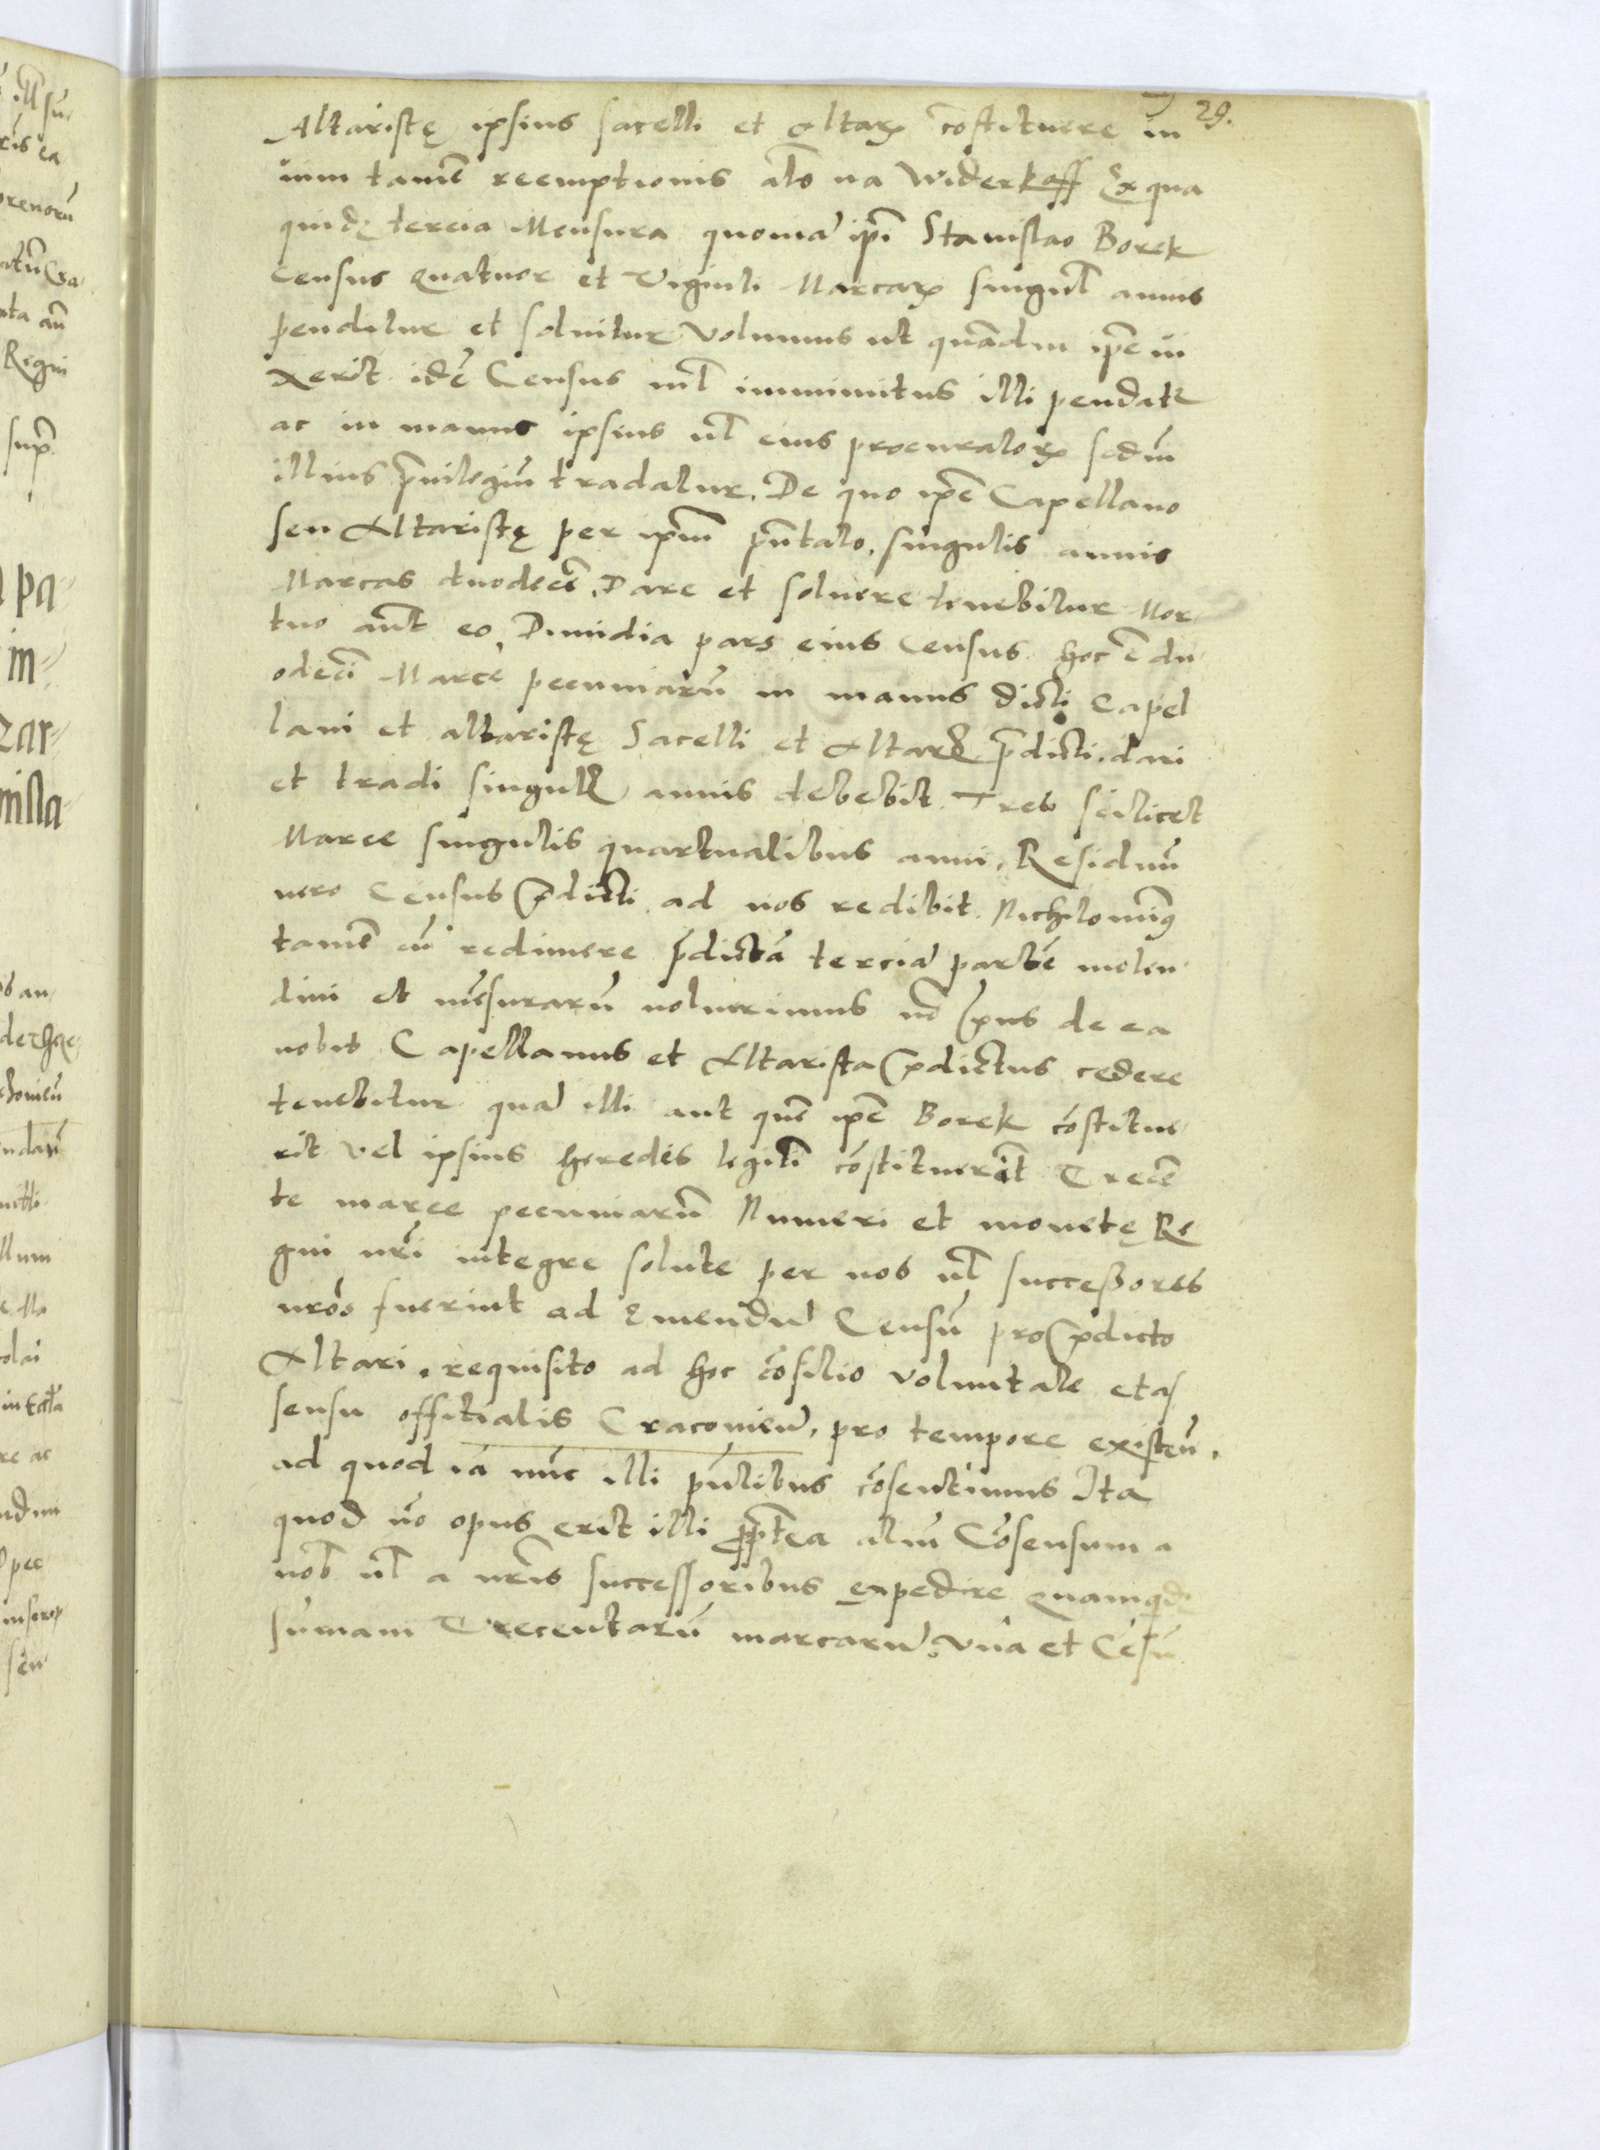 29.
Altaristę ipsius sacelli et Altarꝝ cōstituere in
uim tamē reemptionis al͞s na Widerkaff Ex qua
quidē tercia Mensura quoniā ip̄i Stanislao Borek
Census Quatuor et Viginti Marcarꝝ singul̄ annis
penditur et soluitur Volumus ut quādiu ip̄e ui
xerit idē Census nil̄ imminutus illi pendatr
ac in manus ipsius ul̄ eius procuratorꝝ scd̄m
illius p̄uilegiū tradatur. De quo ip̄e Capellano
seu Altaristę per ip̄m p̄ntato. singulis annis
Marcas duodecē. Dare et soluere tenebitur Mor-
tuo aūt eo. Dimidia pars eius Census. hoc ē du
odecī Marcē pecuniarū in manus dicti Capel
lani et altaristę Sacelli et Altarꝭ p̄dicti. dari
et tradi singulꝭ annis debebit. Tres scilicet
Marce singulis quartualibus anni. Residuū
uero Census p̄dicti. ad nos redibit. Nichilomīꝰ
tamē cū redimere p̄dictā terciā partē molen-
dini et mēsurarū uoluerimus nō p̄us de ea
nobis Capellanus et Altarista p̄dictus cedere
tenebitur quā illi aut quē ip̄e Borek cōstitue-
rit vel ipsius heredes legitī cōstituerīt Trecē
te marce pecuniarū Numeri et monetę Re
gni nr̄i integre solute per nos ul̄ successores
nr̄os fuerint ad emendū Censū pro p̄dicto
Altari. requisito ad hoc cōsilio voluntate et as
sensu offitialis Cracouień. pro tempore existeñ.
ad quod iā nūc illi p̄ntibus cōsentimus Ita
quod nō opus erit illi p̄p̄tea aliū Cōsensum a
nob̄ ul̄ a nr̄is successoribus expedire Quamqd̄
sūmam Trecentarū marcarū. vna et Cēsū